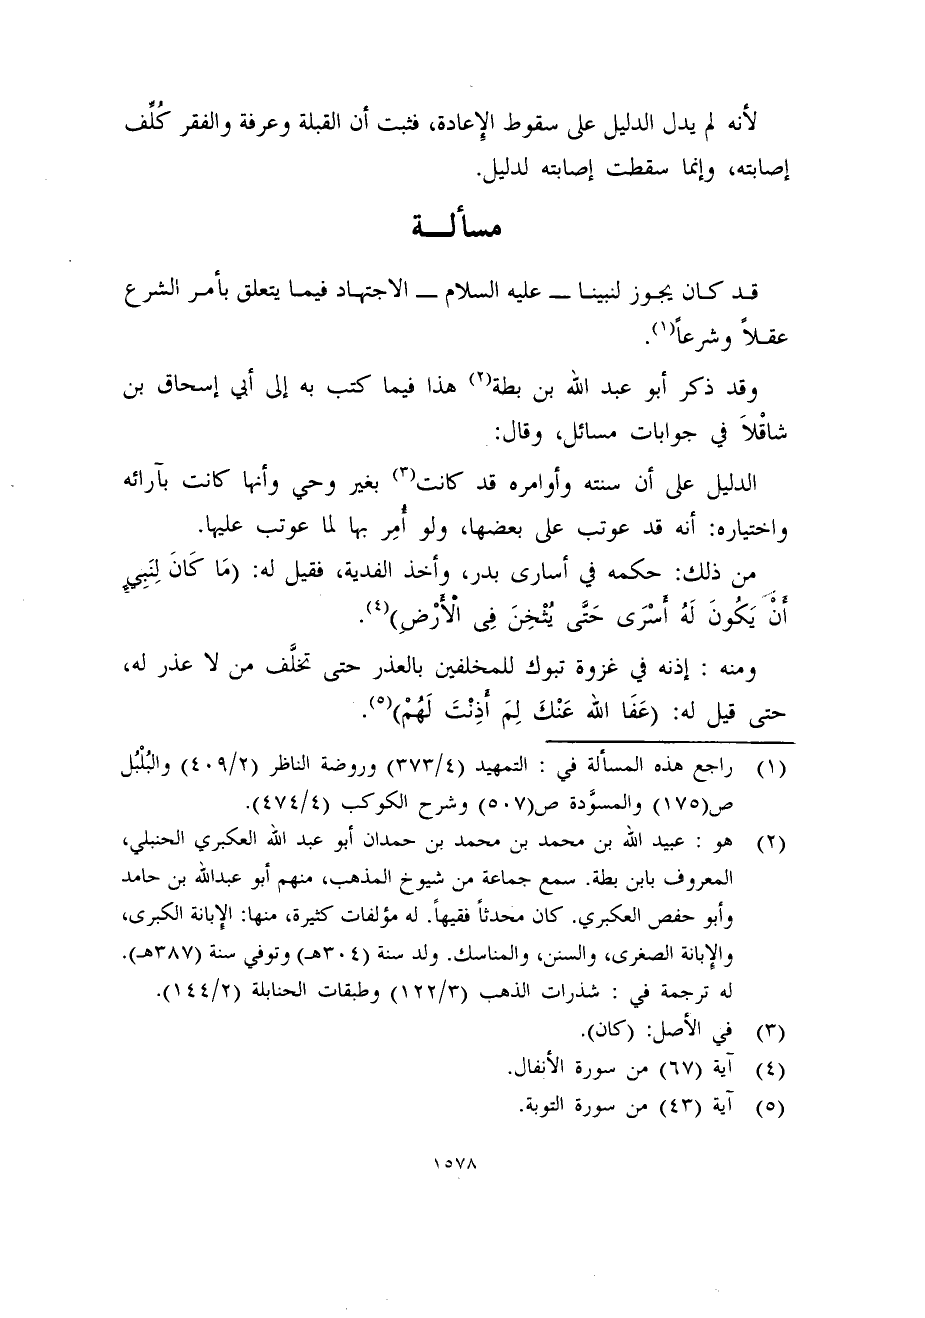 لأنه لم يدل الدليل على سقوط الإعادة، فثبت أن القبلة وعرفة والفقر كُلِّف
إصابته، وإنما سقطت إصابته لدليل.
مسألة
قد كان يجوز لنبينا ــ عليه السلام ــ الاجتهاد فيما يتعلق بأمر الشرع
عقلاً وشرعاً(١).
وقد ذكر أبو عبد الله بن بطة(٢) هذا فيما كتب به إلى أبي إسحاق بن
شاقْلاَ في جوابات مسائل، وقال:
الدليل على أن سنته وأوامره قد كانت(٣) بغير وحي وأنها كانت بآرائه
واختياره: أنه قد عوتب على بعضها، ولو أُمِر بها لما عوتب عليها.
من ذلك: حكمه في أسارى بدر، وأخذ الفدية، فقيل له: (مَا كَانَ لِنَبِيٍّ
أَنْ يَكُونَ لَهُ أَسْرَى حَتَّى يُثْخِنَ فِى الْأَرْضِ)(٤).
ومنه : إذنه في غزوة تبوك للمخلفين بالعذر حتى تخلَّف من لا عذر له،
حتى قيل له: (عَفَا الله عَنْكَ لِمَ أَذِنْتَ لَهُمْ)(٥).
(١) راجع هذه المسألة في : التمهيد (٣٧٣/٤) وروضة الناظر (٤٠٩/٢) والبُلْبُل
ص(١٧٥) والمسوَّدة ص(٥٠٧) وشرح الكوكب (٤٧٤/٤).
(٢) هو : عبيد الله بن محمد بن محمد بن حمدان أبو عبد الله العكبري الحنبلي،
المعروف بابن بطة. سمع جماعة من شيوخ المذهب، منهم أبو عبدالله بن حامد
وأبو حفص العكبري. كان محدثاً فقيهاً. له مؤلفات كثيرة، منها: الإبانة الكبرى،
والإبانة الصغرى، والسنن، والمناسك. ولد سنة (٣٠٤هـ) وتوفي سنة (٣٨٧هـ).
له ترجمة في : شذرات الذهب (١٢٢/٣) وطبقات الحنابلة (١٤٤/٢).
(٣) في الأصل: (كان).
(٤) آية (٦٧) من سورة الأنفال.
(٥) آية (٤٣) من سورة التوبة.
١٥٧٨